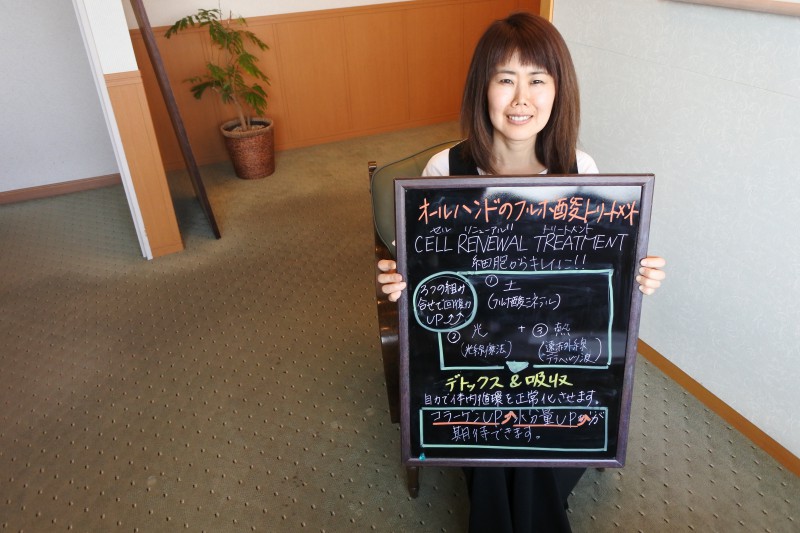 オールハンドのフルボ酸トリートメント
セル リニューアル トリートメント
CELL RENEWAL TREATMENT
細胞からキレイに!!
3つの組み
合せで回復力
UP↗↗
① 土
(フルボ酸ミネラル)
② 光
(光線療法)
+ ③ 熱
(遠赤外線
テラヘルツ波)
デトックス & 吸収
自力で体内循環を正常化させます。
コラーゲンUP↗水分量UP↗が
期待できます。